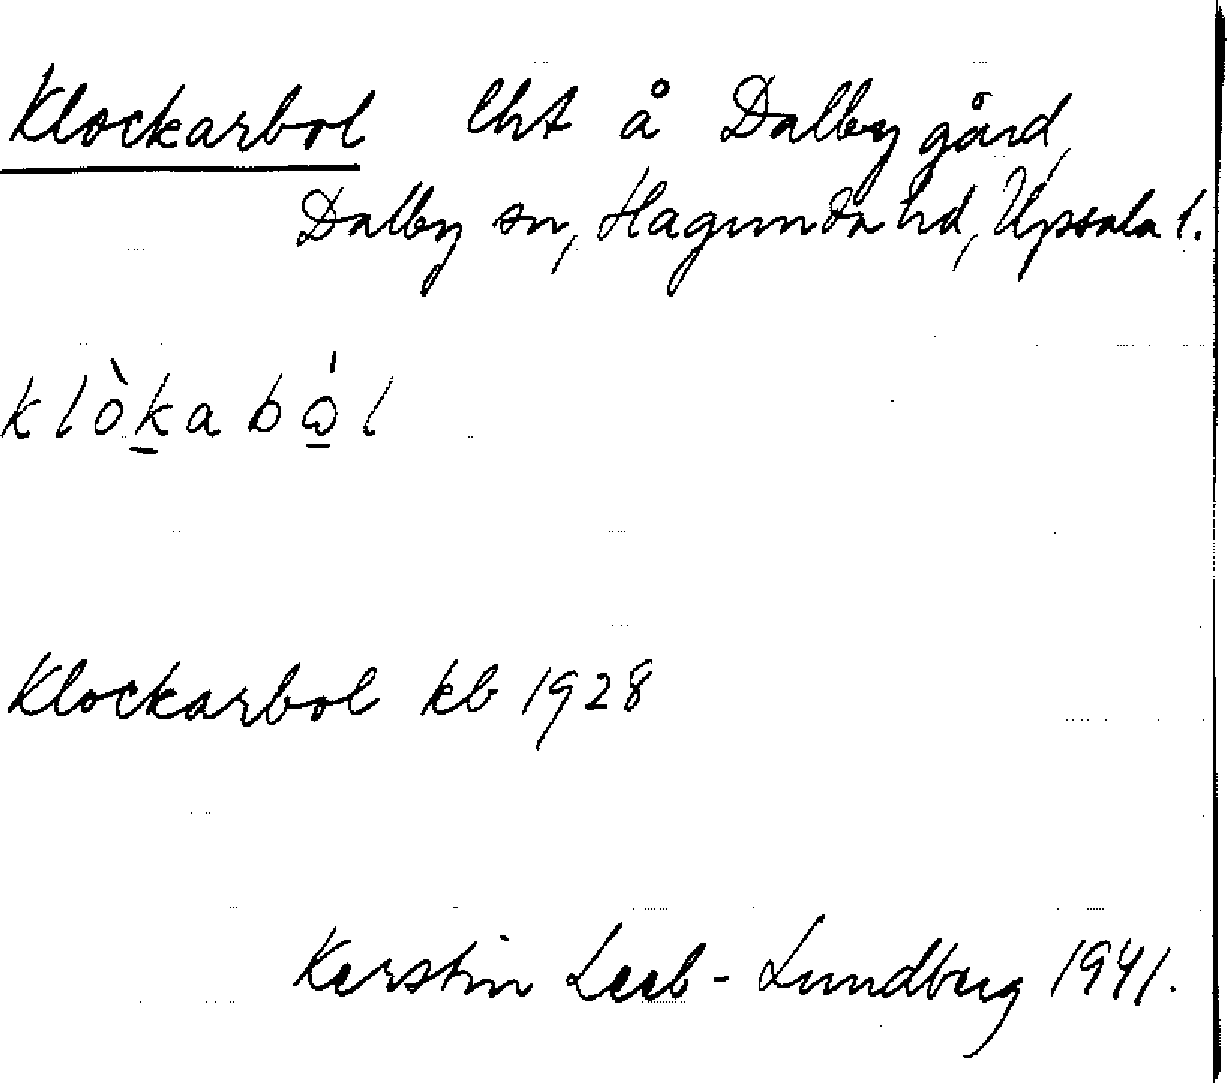 Klockarbol lht å Dalby gård,
Dalby sn, Hagunda hd, Upsala l.
klòk̲abώ̲l
Klockarbol kb 1928
Kerstin Leeb-Lundberg 1941.